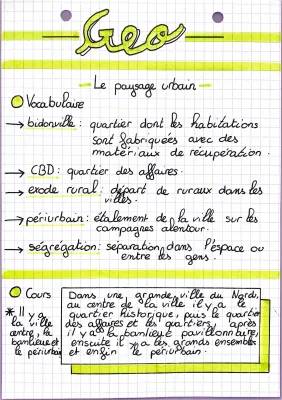 Geo
Le paysage urbain
Vocabulaire
→ bidonville : quartier dont les habitations
sont fabriquées avec des
matériaux de récupération.
→ CBD : quartier des affaires.
→ exode rural : départ de ruraux dans les
villes.
→ périurbain : étalement de la ville sur les
campagnes alentour.
→ ségrégation : separation dans l'espace ou
entre les gens.
Cours
* Il y a
la ville
centre, la
banlieue et
le périurbain
Dans une grande ville du Nord,
au centre de la ville il y a le
quartier historique, puis le quartier
des affaires et les quartiers, après
il y a la banlieue pavillonnaire,
ensuite il y a les grands ensembles
et enfin le périurbain.